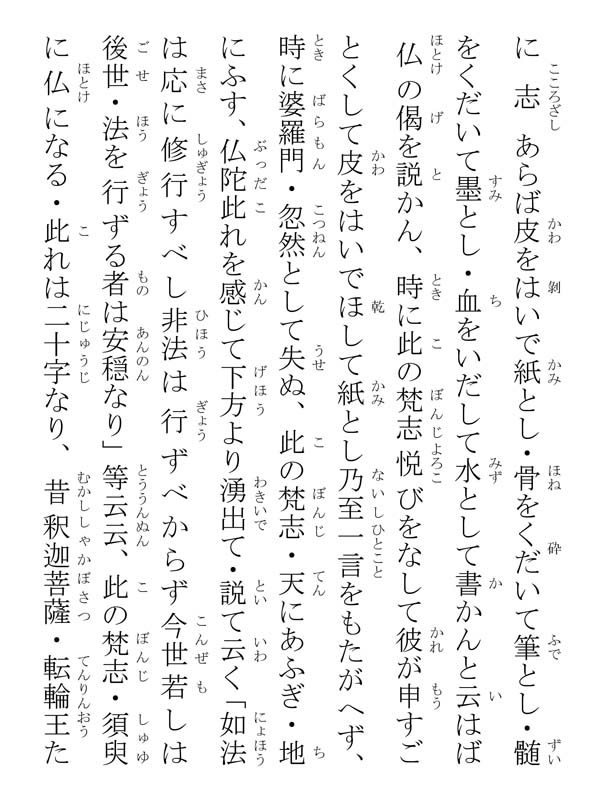 に志あらば皮をはいで紙とし・骨をくだいて筆とし・髄
をくだいて墨とし・血をいだして水として書かんと云はば
仏の偈を説かん、時に此の梵志悦びをなして彼が申すご
とくして皮をはいでほして紙とし乃至一言をもたがへず、
時に婆羅門・忽然として失ぬ、此の梵志・天にあふぎ・地
にふす、仏陀此れを感じて下方より湧出て・説て云く「如法
は応に修行すべし非法は行ずべからず今世若しは
後世・法を行ずる者は安穏なり」等云云、此の梵志・須臾
に仏になる・此れは二十字なり、昔釈迦菩薩・転輪王た